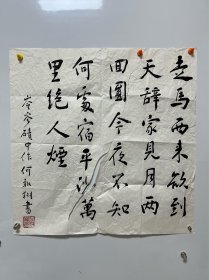 走馬西來欲到
天辭家見月兩
回圓今夜不知
何處宿平沙萬
里絕人煙
岑參磧中作 何書